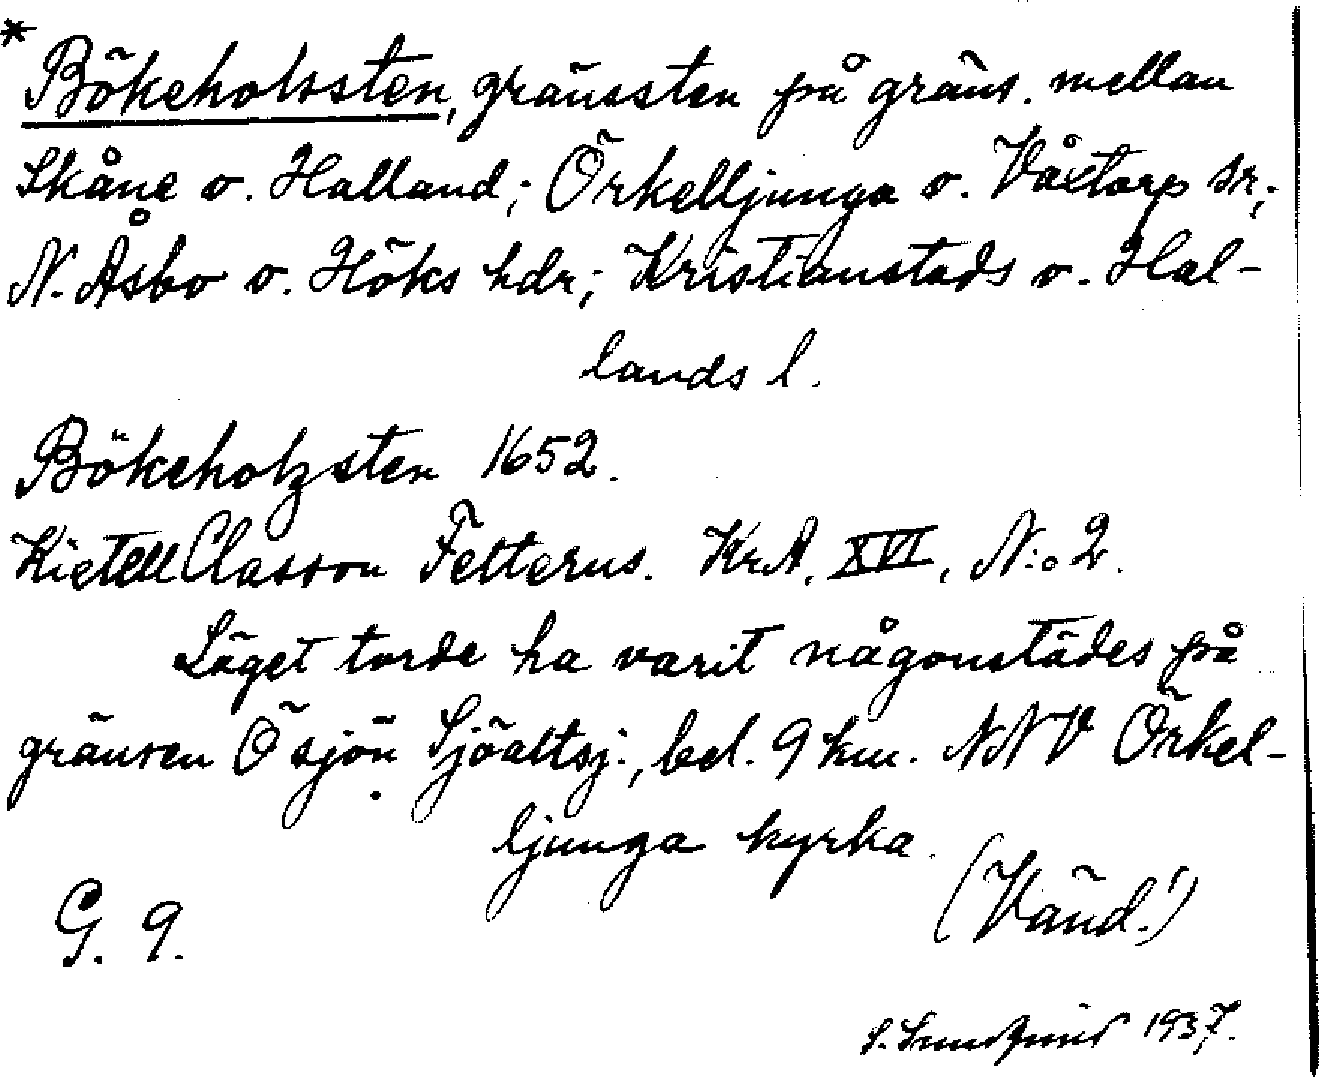 * Bökeholssten, gränssten på gräns. mellan
Skåne o. Halland; Örkelljunga o. Våxtorp sr;
N. Åsbo o. Höks hdr; Kristianstads o. Hal-
lands l.
Bökeholzsten 1652.
Kietell Classon Felterus. KrA. XVI, N:o 2.
Läget torde ha varit någonstädes på
gränsen Ösjön Sjöaltsj., bel. 9 km. NNV Örkel-
ljunga kyrka.
(Vänd!)
G. 9.
S. Sundqvist 1937.